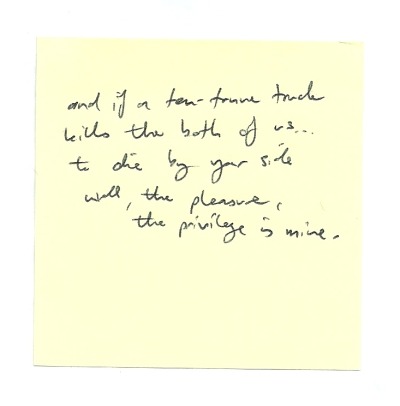 and if a ten-tonne truck
kills the both of us...
to die by your side
well, the pleasure,
the privilege is mine.